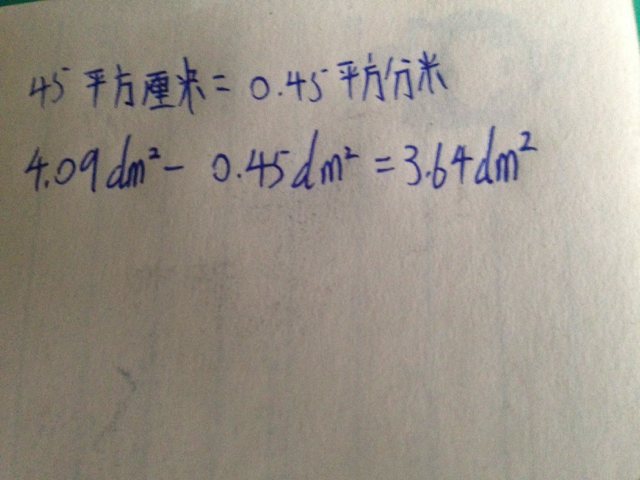 45平方厘米=0.45平方分米
4.09dm²-0.45dm²=3.64dm²